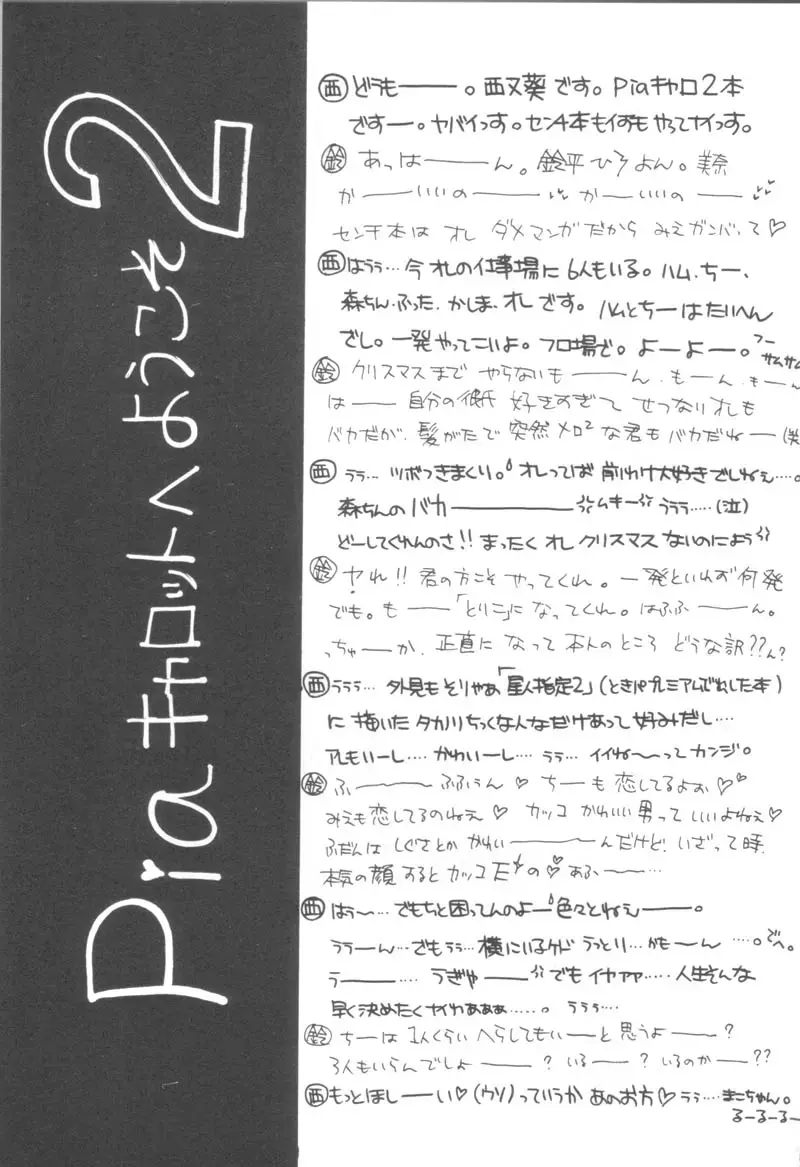 Piaキャロットへようこそ2
西 どうも――。西又葵です。Piaキャロ2本
ですー。ヤバイっす。センチ本も何もやってナイっす。
鈴 あっはーーん。鈴平ひろよん。美奈
かーーいいのーーー かーーいいのーー
センチ本は オレ ダメマンガだから みえガンバって♡
西 はうぅ…今オレの仕事場に6人もいる。ハム、ちー、
森ちん、ふった、かしま、オレです。ハムとちーはたいへん
ざし。一発やってこいよ。フロ場で。よーよー。フー
サムサム
鈴 クリスマスまで やらないもーーん、もーん、もーん
はーー 自分の彼氏 好きすぎて せつなりオレも
バカだが、髪がたで突然メロ2な君もバカだねー(笑
西 ぅぅ…ツボつきまくり。オレってば 前わけ大好きでしねぇ…。
森ちんのバカーーーーー ムキー ぅぅぅ……(泣)
どーしてくれんのさ!! まったく オレ クリスマス ないのによう
鈴 ヤれ!! 君の方こそ やってくれ。一発といわず何発
でも。もーー「とりこ」になってくれ。はふふーーん。
っちゅーか、正直に なって 本人のところ どうな訳??ん?
西 ぅぅぅ…外見も そりゃあ「星人指定2」(ときパプレミアムでだした本)
に 描いた タカハリちっくな人なだけあって 好みだし…
アレもいーし…. かわいーし… ぅぅ… イイね〜ってカンジ。
鈴 ふーーー ふふぅん♡ ちーも 恋してるよぉ♡♡
みえも恋してるのねぇ♡ カッコ かわいい 男って いいよねぇ♡
ふだんは しぐさとか かわいーーーーんだけど、いざって時、
本気の顔 すると カッコ Eの♡ あふー…
西 はぅ〜… でもちと困ってんのよー 色々とねぇーー。
ぅぅーん…でもぅぅ…横にいるケド うっとり…かも〜ん ….。でへ。
うーー…. うぎゃーー でも イヤァァ….. 人生そんな
早く決めたくナイわぁぁぁ……。 ぅぅぅ….
鈴 ちーは 1人くらい へらしてもいーと 思うよーー?
3人もいらんでしょーー? いるー? いるのかー??
西 もっとほしーーい♡(ウソ)っていうか あのお方♡ぅぅ….まこちゃん。
るーるーるー